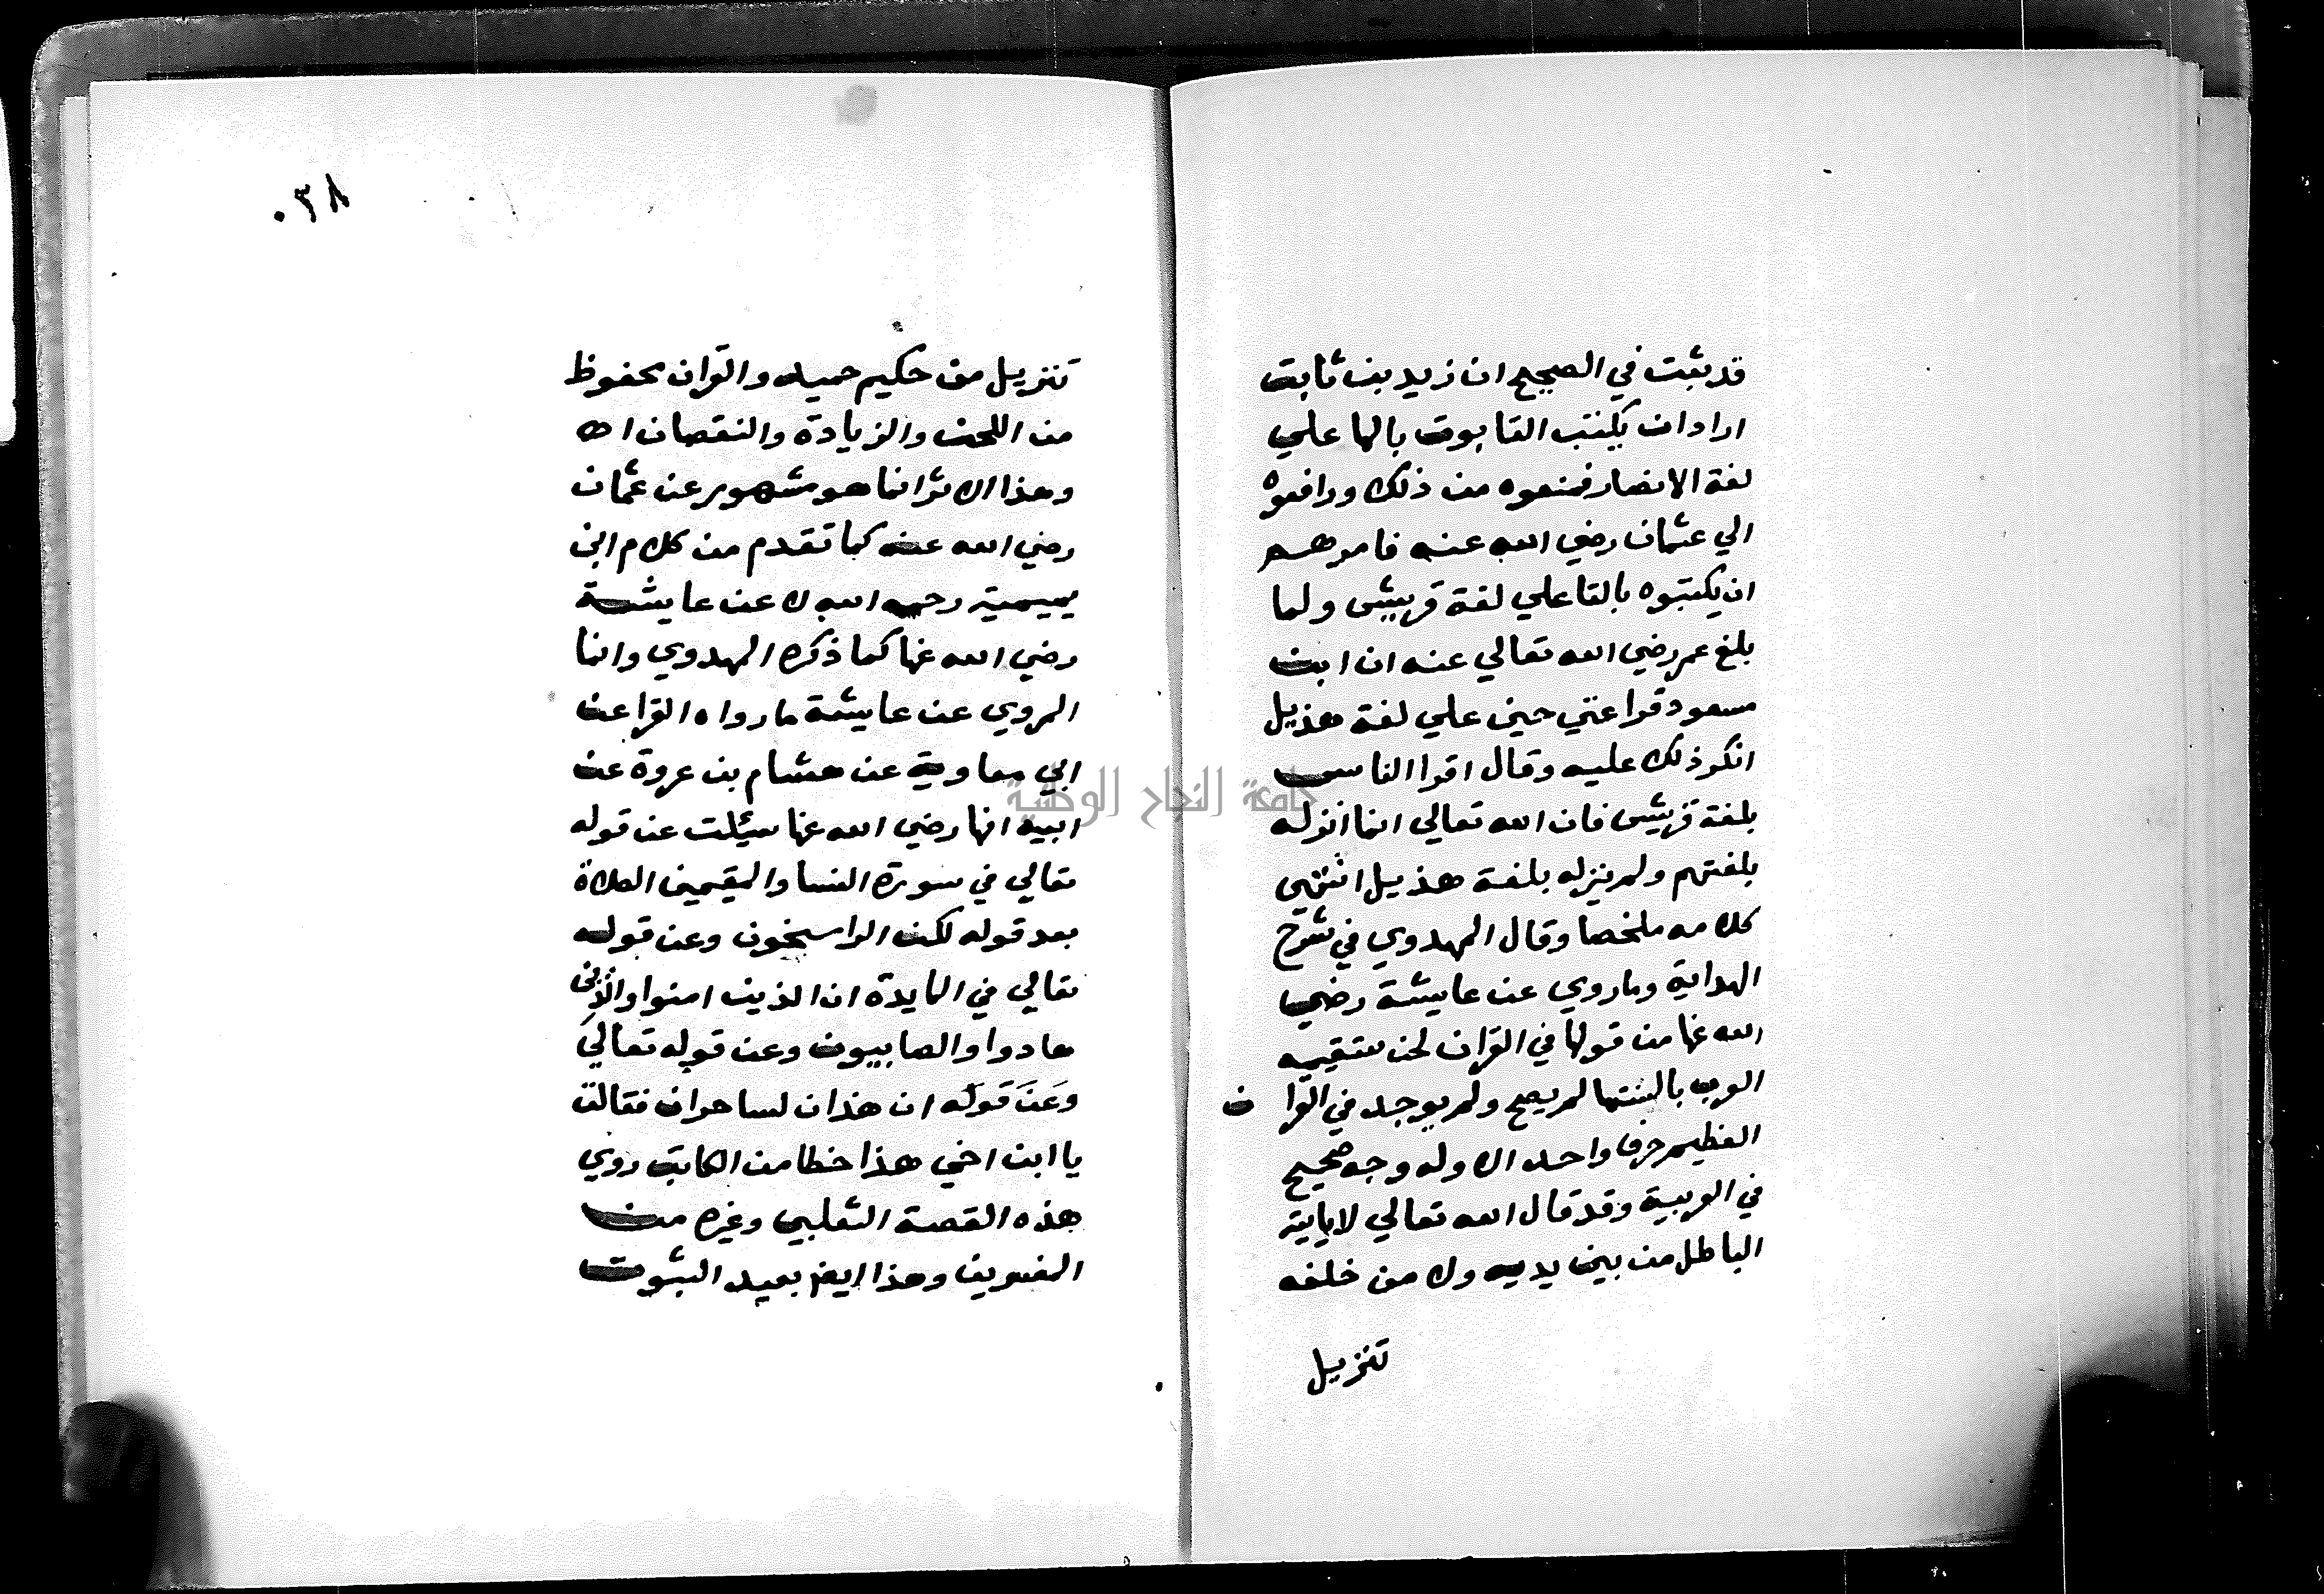 قد ثبت في الصحيح ان زيد بن ثابت
اراد ان يكتب التابوت بالها علي
لغة الانصار فمنعوه من ذلك ورافعوه
الي عثمان رضي الله عنه فامرهم
ان يكتبوه بالتا علي لغة قريش ولما
بلغ عمر رضي الله تعالي عنه ان ابن
مسعود قرا عتي حين علي لغة هذيل
انكر ذلك عليه وقال اقرا الناس
بلغة قريش فان الله تعالي انما انزله
بلغتهم ولم ينزله بلغة هذيل انتهي
كلامه ملخصا وقال المهدوي في شرح
الهداية وما روي عن عايشة رضي
الله عنها من قولها في القران لحن ستقيمه
العرب بالسنتها لم يصح ولم يوجد في القران
العظيم حرف واحد الا وله وجه صحيح
في العربية وقد قال الله تعالي لا ياتيه
الباطل من بين يديه ولا من خلفه
تنزيل
٠٣٨
تنزيل من حكيم حميد والقران محفوظ
من اللحن والزيادة والنقصان اه
وهذا الاثر انما هو مشهور عن عثمان
رضي الله عنه كما تقدم من كلام ابن
تيمية رحمه الله لا عن عايشة
رضي الله عنها كما ذكره المهدوي وانما
المروي عن عايشة ما رواه الفرا عن
ابي معاوية عن هشام بن عروة عن
ابيه انها رضي الله عنها سئلت عن قوله
تعالي في سورة النسا والمقيمين الصلاة
بعد قوله لكن الراسخون وعن قوله
تعالي في المايدة ان الذين امنوا والذين
هادوا والصابيون وعن قوله تعالي
وعن قوله ان هذان لساحران فقالت
يا ابن اخي هذا خطا من الكاتب روي
هذه القصة الثعلبي وغيره من
المفسرين وهذا ايضا بعيد الثبوت
جامعة النجاح الوطنية